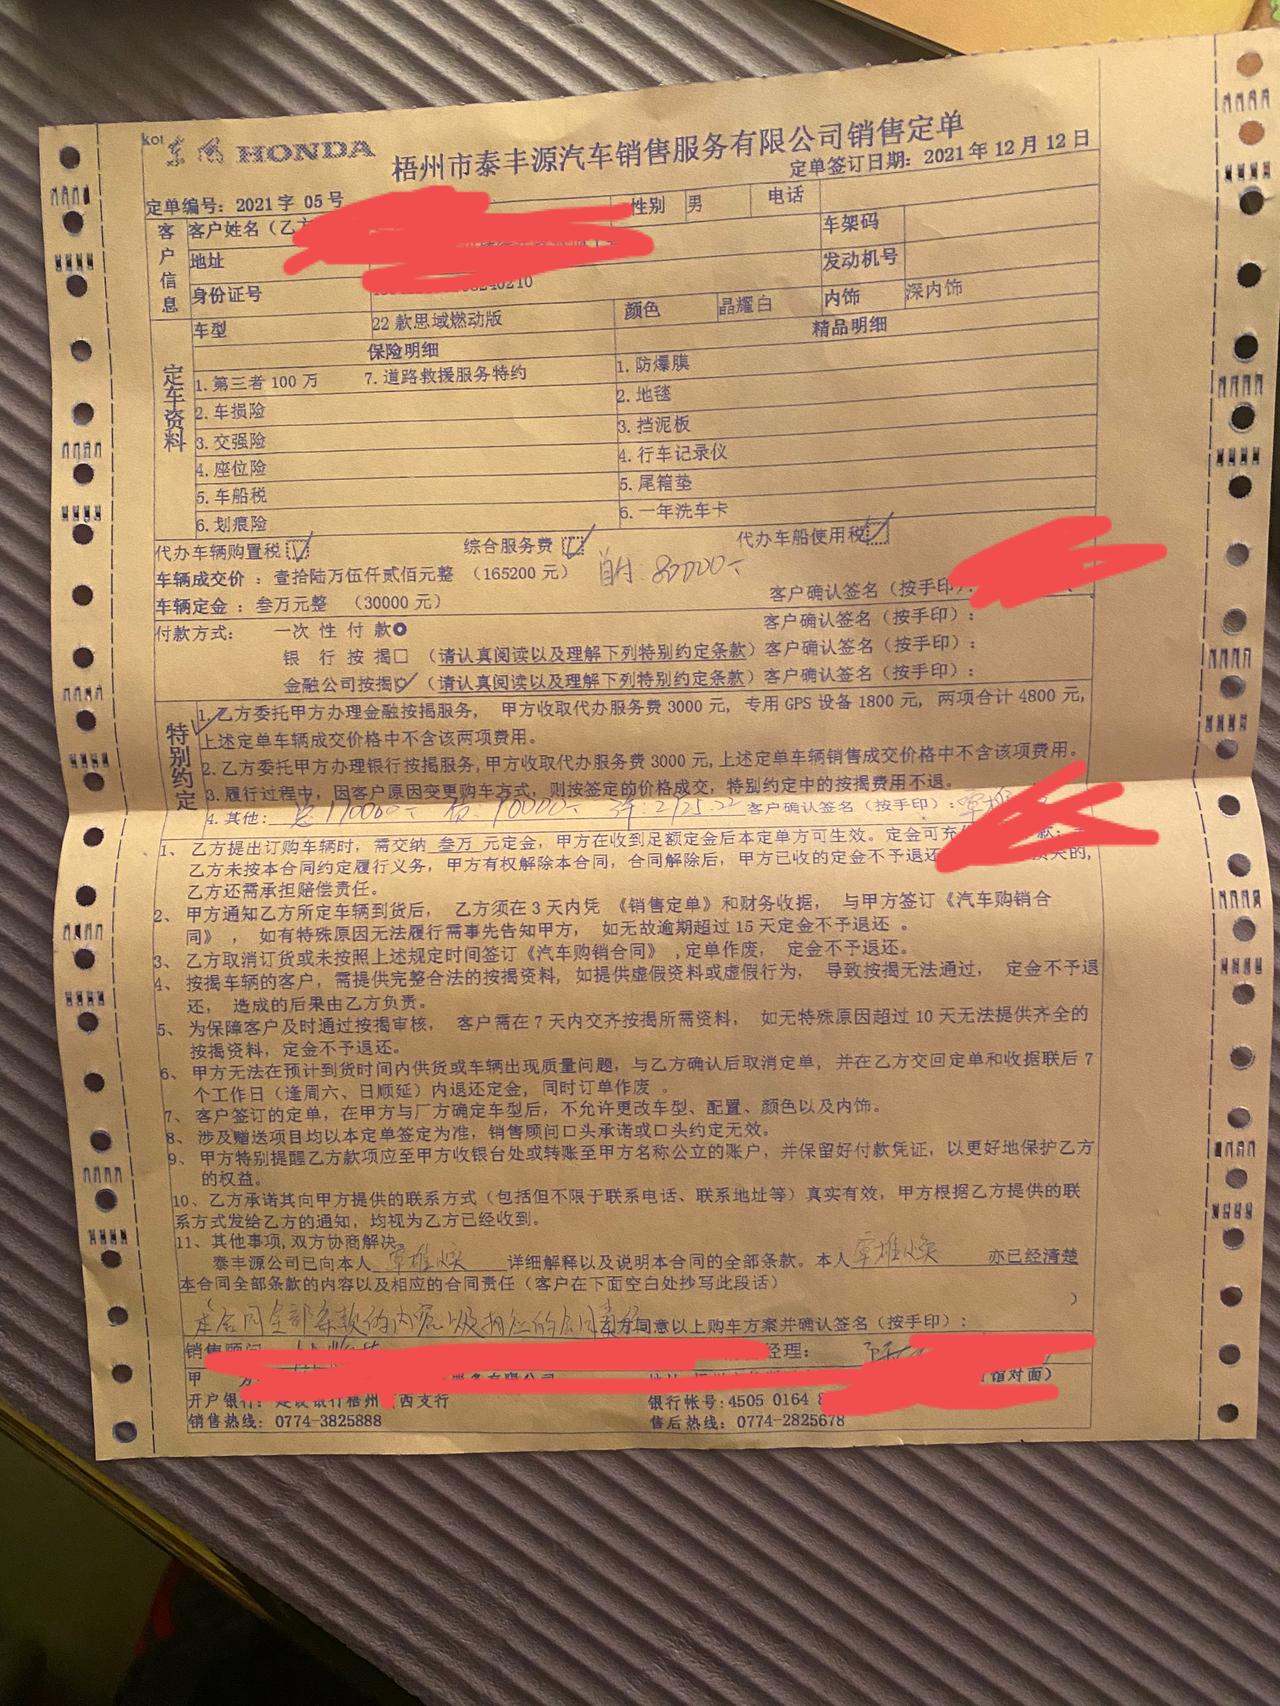 东风 HONDA 梧州市泰丰源汽车销售服务有限公司销售定单
定单编号：2021字 05号 定单签订日期：2021年12月12日
客户信息
客户姓名（乙方 性别 男 电话
地址 车架码
身份证号 240210 发动机号
定车资料
车型 22款思域燃动版 颜色 晶耀白 内饰 深内饰
保险明细 精品明细
1.第三者100万 7.道路救援服务特约 1.防爆膜
2.车损险 2.地毯
3.交强险 3.挡泥板
4.座位险 4.行车记录仪
5.车船税 5.尾箱垫
6.划痕险 6.一年洗车卡
代办车辆购置税☑ 综合服务费☑ 代办车船使用税☑
车辆成交价：壹拾陆万伍仟贰佰元整 （165200元） 首付：80000元
车辆定金：叁万元整 （30000元） 客户确认签名（按手印）：
付款方式： 一次性付款 客户确认签名（按手印）：
银行按揭□ （请认真阅读以及理解下列特别约定条款）客户确认签名（按手印）：
金融公司按揭☑ （请认真阅读以及理解下列特别约定条款）客户确认签名（按手印）：
特别约定
1.乙方委托甲方办理金融按揭服务， 甲方收取代办服务费3000元，专用GPS设备1800元，两项合计4800元，
上述定单车辆成交价格中不含该两项费用。
2.乙方委托甲方办理银行按揭服务,甲方收取代办服务费3000元,上述定单车辆销售成交价格中不含该项费用。
3.履行过程中，因客户原因变更购车方式，则按签定的价格成交，特别约定中的按揭费用不退。
4.其他： 客户确认签名（按手印）：
1、乙方提出订购车辆时，需交纳 叁万 元定金，甲方在收到足额定金后本定单方可生效。定金可充
乙方未按本合同约定履行义务，甲方有权解除本合同，合同解除后，甲方已收的定金不予退还 的，
乙方还需承担赔偿责任。
2、甲方通知乙方所定车辆到货后， 乙方须在3天内凭《销售定单》和财务收据， 与甲方签订《汽车购销合
同》， 如有特殊原因无法履行需事先告知甲方，如无故逾期超过15天定金不予退还 。
3、乙方取消订货或未按照上述规定时间签订《汽车购销合同》,定单作废， 定金不予退还。
4、按揭车辆的客户，需提供完整合法的按揭资料，如提供虚假资料或虚假行为， 导致按揭无法通过， 定金不予退
还， 造成的后果由乙方负责。
5、为保障客户及时通过按揭审核， 客户需在7天内交齐按揭所需资料， 如无特殊原因超过10天无法提供齐全的
按揭资料，定金不予退还。
6、甲方无法在预计到货时间内供货或车辆出现质量问题，与乙方确认后取消定单，并在乙方交回定单和收据联后7
个工作日（逢周六、日顺延）内退还定金，同时订单作废 。
7、客户签订的定单，在甲方与厂方确定车型后，不允许更改车型、配置、颜色以及内饰。
8、涉及赠送项目均以本定单签定为准，销售顾问口头承诺或口头约定无效。
9、甲方特别提醒乙方款项应至甲方收银台处或转账至甲方名称公立的账户，并保留好付款凭证，以更好地保护乙方
的权益。
10、乙方承诺其向甲方提供的联系方式（包括但不限于联系电话、联系地址等）真实有效，甲方根据乙方提供的联
系方式发给乙方的通知，均视为乙方已经收到。
11、其他事项,双方协商解决。
泰丰源公司已向本人 详细解释以及说明本合同的全部条款。本人 亦已经清楚
本合同全部条款的内容以及相应的合同责任（客户在下面空白处抄写此段话）
）
本合同全部条款的内容以及相应的合同责任 方同意以上购车方案并确认签名（按手印）：
销售顾问 经理：
甲 方 服务有限公司 馆对面）
开户银行：建设银行梧州 西支行 银行帐号：4505 0164
销售热线：0774-3825888 售后热线：0774-2825678